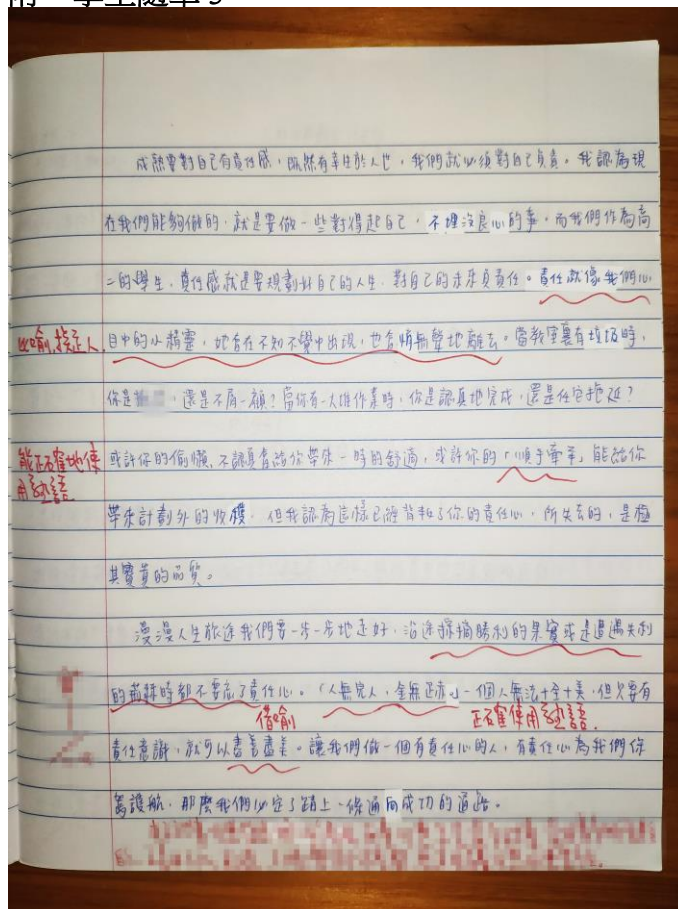 附 學生隨筆3
成熟要對自己有責任感，既然有幸生於人世，我們就必須對自己負責。我認為現
在我們能夠做的，就是要做一些對得起自己，不埋沒良心的事。而我們作為高
二的學生，責任感就是要規劃好自己的人生，對自己的未來負責任。責任就像我們心
比喻，擬人。
目中的小精靈，她會在不知不覺中出現，也會悄無聲地離去。當教室裏有垃圾時，
你是 ，還是不屑一顧？當你有一大堆作業時，你是認真地完成，還是任它拖延？
能正確地使用熟語
或許你的偷懶，不認真會給你帶來一時的舒適，或許你的「順手牽羊」能給你
帶來計劃外的收穫，但我認為這樣已經背叛了你的責任心，所失去的，是極
其寶貴的品質。
漫漫人生旅途我們要一步一步地走好，沿途採摘勝利的果實或是遭遇失利
的荊棘時都不要忘了責任心。「人無完人，金無足赤。」一個人無法十全十美，但只要有
借喻
正確使用熟語。
責任意識，就可以盡善盡美。讓我們做一個有責任心的人，有責任心為我們保
駕護航，那麼我們必定了踏上一條通向成功的道路。